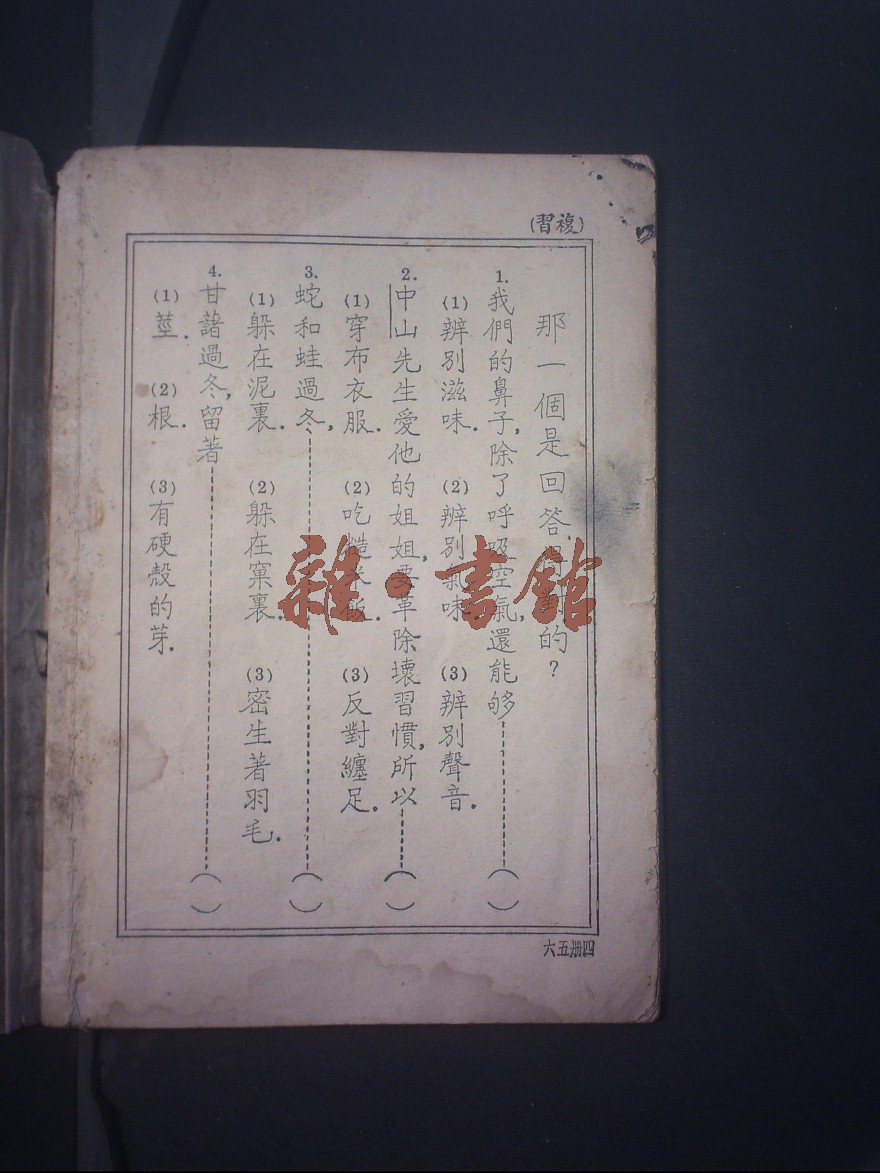 (複習)
那一個是回答得對的？
1. 我們的鼻子，除了呼吸空氣，還能够……（ ）
(1) 辨別滋味． (2) 辨別氣味． (3) 辨別聲音．
2. 中山先生愛他的姐姐，要革除壞習慣，所以……（ ）
(1) 穿布衣服． (2) 吃糙米飯． (3) 反對纏足．
3. 蛇和蛙過冬，……（ ）
(1) 躲在泥裏． (2) 躲在窠裏． (3) 密生著羽毛．
4. 甘藷過冬，留著……（ ）
(1) 莖． (2) 根． (3) 有硬殼的芽．
四册五六
雜·書館